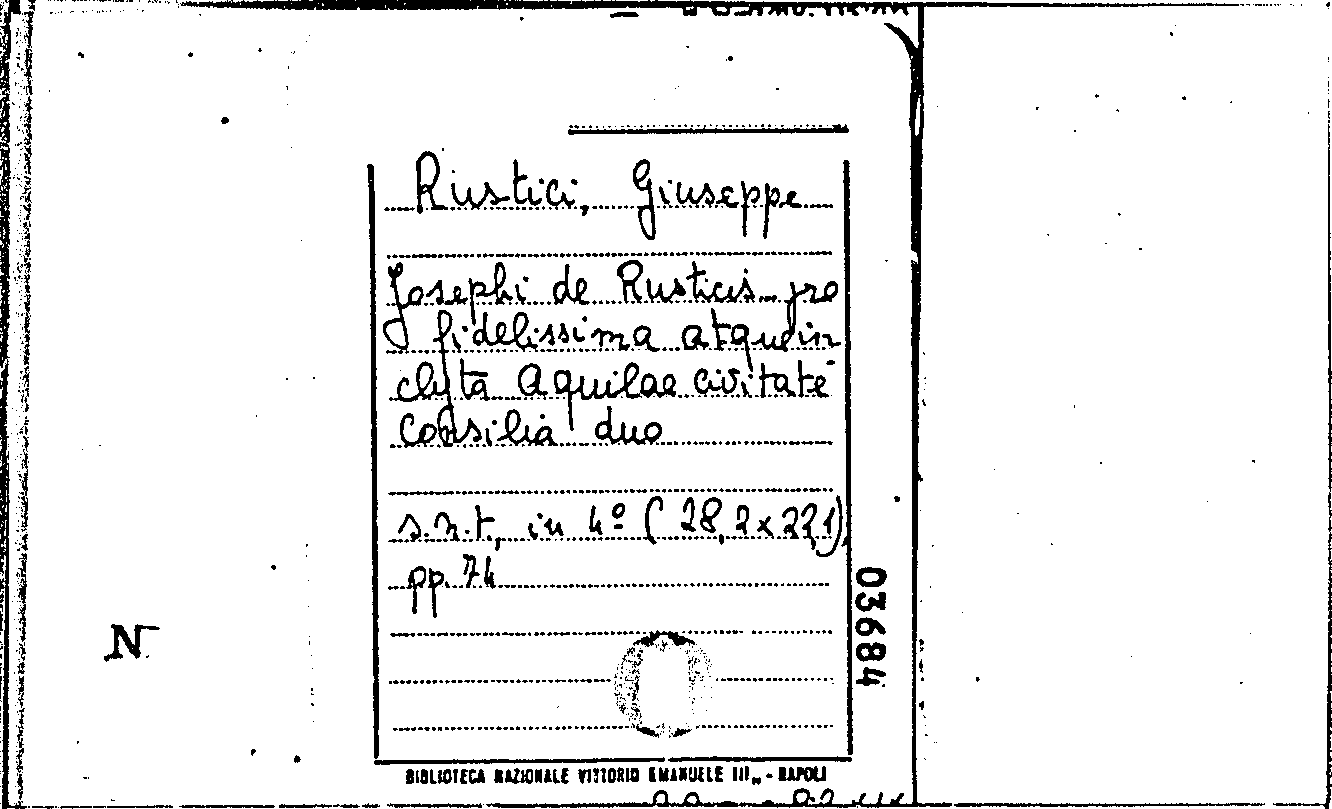 Rustici, Giuseppe
Josephi de Rusticis pro
fidelissima atque in
clyta Aquilae civitate
Consilia duo
s.n.t., in 4º (28,2x22,1)
pp. 74
03684
N
BIBLIOTECA NAZIONALE VITTORIO EMANUELE III„ - NAPOLI